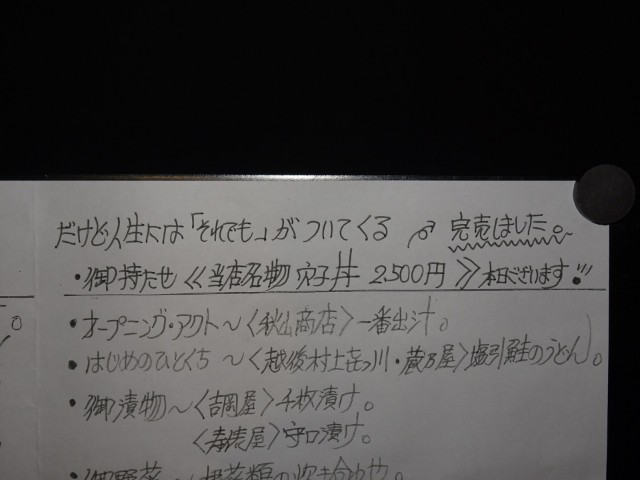 だけど人生には「それでも」がついてくる 完売しました。
・御持たせ≪当店名物 穴子丼 2,500円≫本日ございます!!
・オープニング・アクト〜〈秋山商店〉一番出汁。
・はじめのひとくち〜〈越後村上㐂っ川・蔵乃屋〉塩引鮭のうどん。
・御漬物〜〈吉岡屋〉千枚漬け。
〈寿俵屋〉守口漬け。
・御野菜〜根菜類の炊き合わせ。